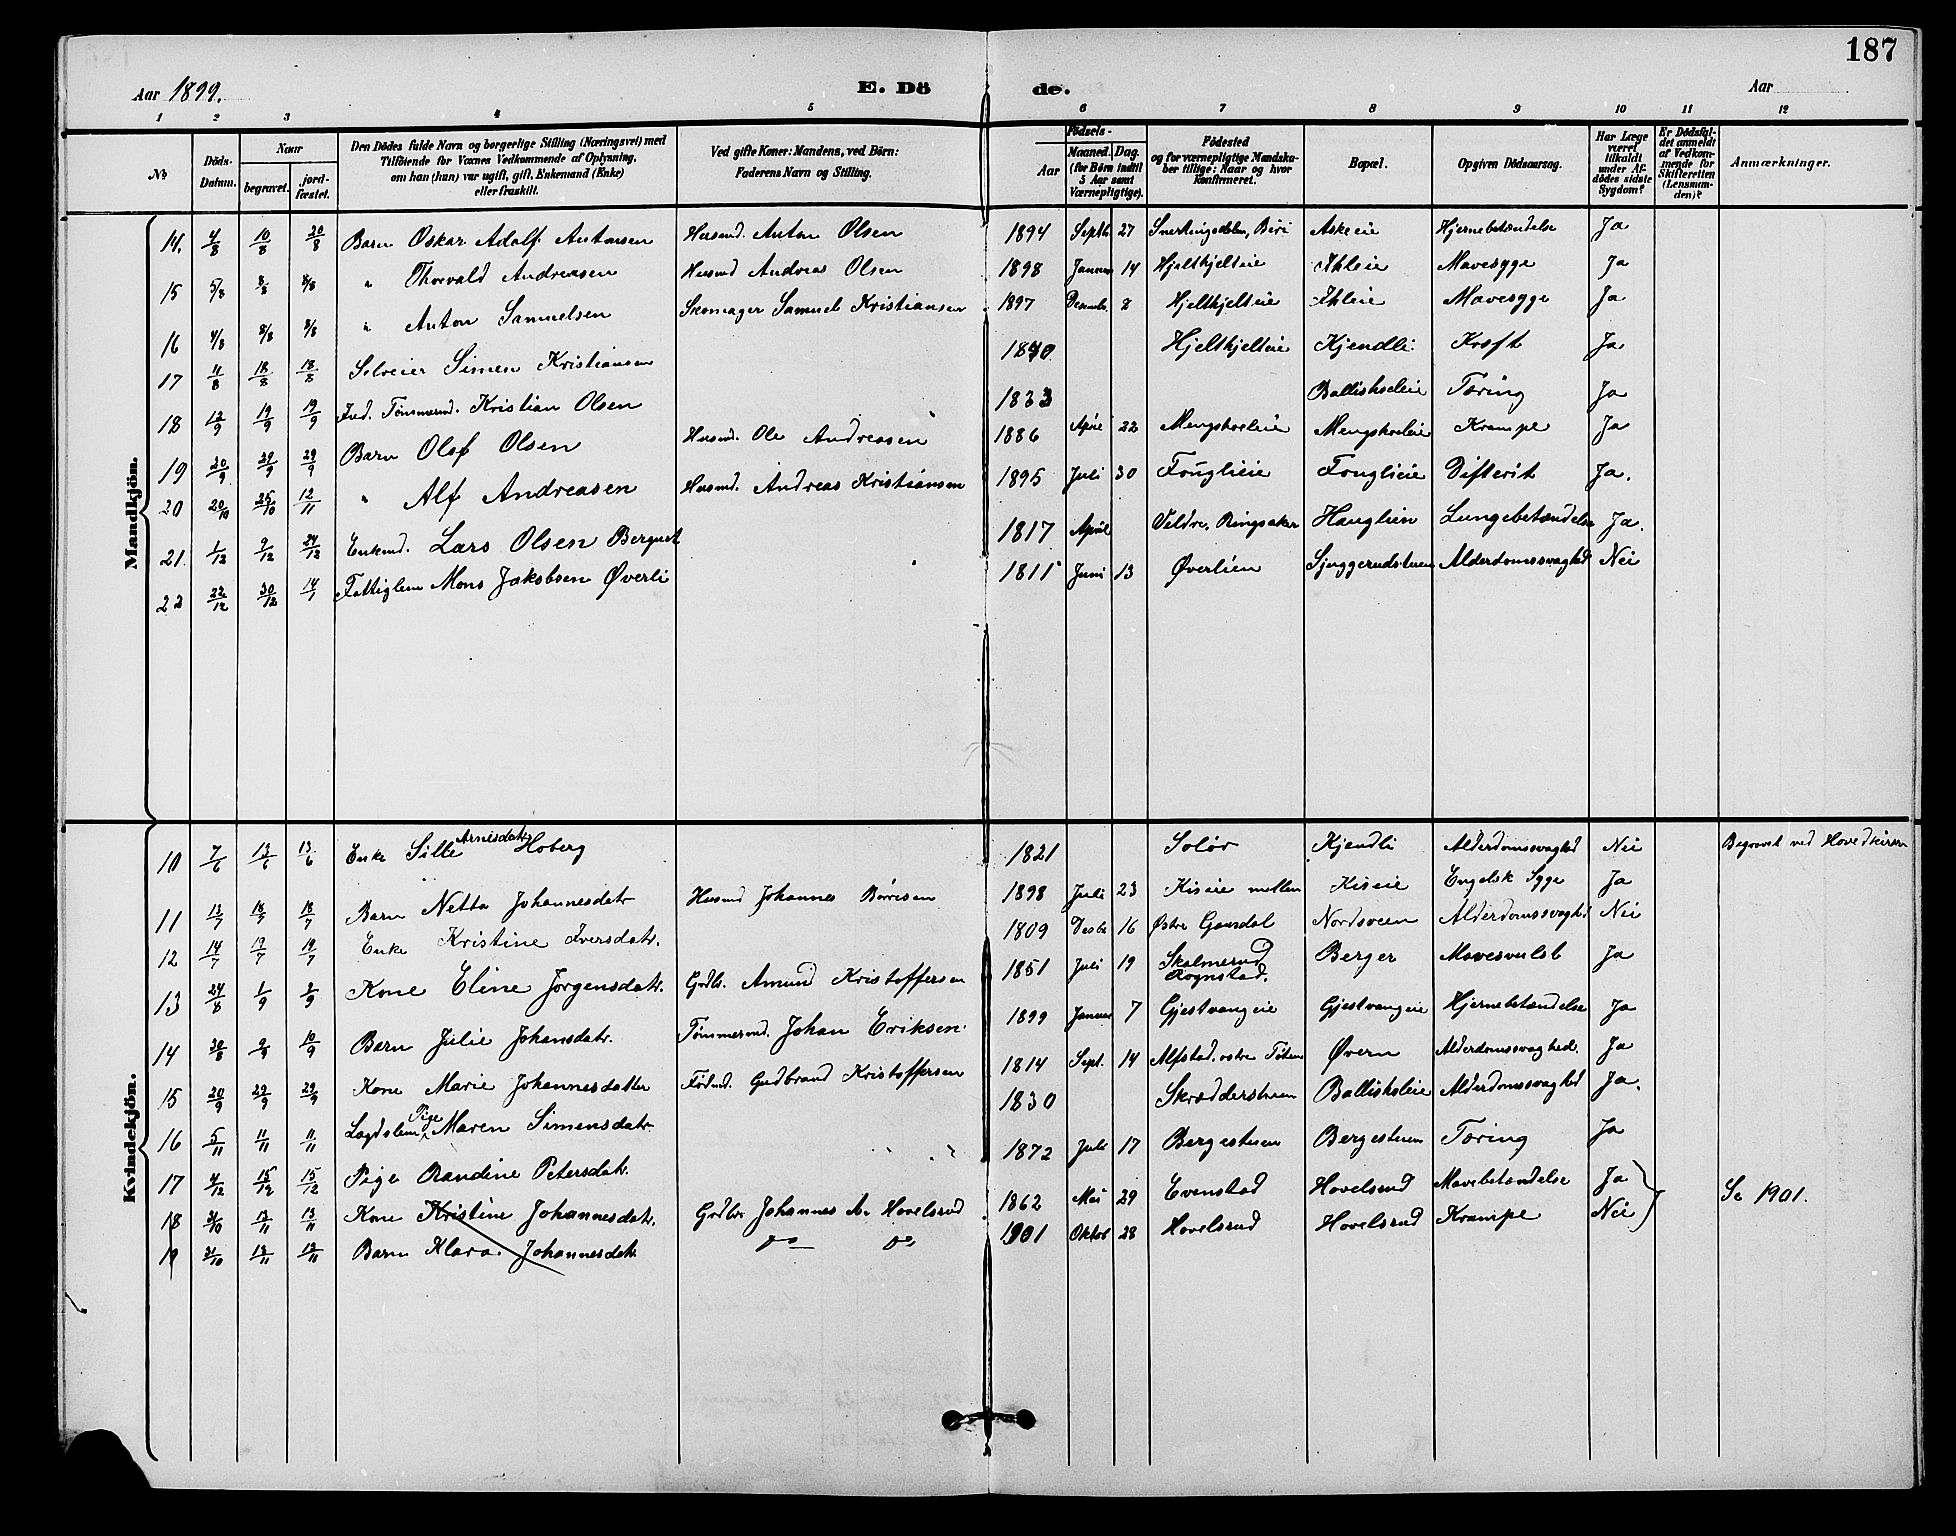 187
Aar 1899. E. Dö de. Aar
1 2 3 4 5 6 7 8 9 10 11 12
No Döds-Datum. Naar begravet. jord-fæstet. Den Dödes fulde Navn og borgerlige Stilling (Næringsvei) med Tilföiende for Voxnes Vedkommende af Oplysning, om han (hun) var ugift, gift, Enkemand (Enke) eller fraskilt. Ved gifte Koner: Mandens, ved Börn: Faderens Navn og Stilling. Födsels- Aar Maaned. Dag. (for Börn indtil 5 Aar samt Værnepligtige). Födested og for værnepligtige Mandskaber tillige: Naar og hvor konfirmeret. Bopæl. Opgiven Dödsaarsag. Har Læge været tilkaldt under Afdödes sidste Sygdom? Er Dödsfaldet anmeldt af Vedkommende for Skifteretten (Lensmanden)? Anmærkninger.
Mandkjön.
14. 4/8 10/8 20/8 Barn Oskar Adolf Antonsen Husmd. Anton Olsen 1894 Septb. 27 Snertingsdalen, Biri Askeie Hjernebetændelse Ja
15 5/8 8/8 8/8 " Thorvald Andreasen Husmd Andreas Olsen 1898 Januar 14 Hjeltkjelteie Ihleie Mavesyge Ja
16 4/8 8/8 8/8 " Anton Samuelsen Skomager Samuel Kristiansen 1897 Decembr. 8 Hjeltkjelteie Ihleie Mavesyge Ja
17 11/8 18/8 18/8 Selveier Simen Kristiansen 1840 Hjeltkjelteie Kjendli Kræft Ja
18 12/9 19/9 19/9 Ind. Tømmermd. Kristian Olsen 1833 Ballisholeie Tæring Ja
19 20/9 29/9 29/9 Barn Olof Olsen Husmd. Ole Andreasen 1886 April 22 Mengsholeie Mengsholeie Krampe Ja
20 20/10 25/10 12/11 " Alf Andreasen Husmd. Andreas Kristiansen 1895 Juli 30 Fouglieie Fouglieie Difterit Ja.
21. 1/12 9/12 24/12 Enkemd. Lars Olsen Berquet 1817 April Veldre, Ringsaker Hauglien Lungebetændelse Ja.
22 22/12 30/12 14/1 Fattiglem Mons Jakobsen Øverli 1811 Juni 13 Øverlien Sjuggerudstuen Alderdomssvaghed Nei
Kvindekjön.
10 7/6 13/6 13/6 Enke Sille Arnesdatr Hoberg 1821 Solør Kjendli Alderdomssvaghed Nei Begravet ved Hovedkirken
11 13/7 18/7 18/7 Barn Netta Johannesdatr Husmd Johannes Børresen 1898 Juli 23 Kiseie mellem Kiseie Engelsk Syge Ja
12 14/7 19/7 19/7 Enke Kristine Iversdatr. 1809 Decbr 16 Østre Gausdal Nordsveen Alderdomssvaghed Nei
13 24/8 1/9 1/9 Kone Eline Jørgensdatr. Grdbr. Amund Kristoffersen 1851 Juli 19 Skolmerud Rognstad. Berger Mavesvulst Ja
14 30/8 9/9 10/9 Barn Julie Johansdatr. Tømmermd. Johan Eriksen 1899 Januar 7 Gjestvangeie Gjestvangeie Hjernebetændelse Ja
15 20/9 29/9 29/9 Kone Marie Johannesdatter Fødrmd. Gudbrand Kristoffersen 1814 Sept. 14 Alfstad, østre Toten Øvern Alderdomssvaghed. Ja
16 5/11 11/11 11/11 Lægdslem, Pige Maren Simensdatr. 1830 Skrædderstuen Ballisholeie Alderdomssvaghed Ja.
17 4/12 15/12 15/12 Pige Randine Petersdatr. 1872 Juli 17 Bergestuen Bergestuen Tæring Ja
18 31/10 13/11 13/11 Kone Kristine Johannesdatr. Grdbr Johannes A. Hovelsrud 1862 Mai 29 Evenstad Hovelsrud Mavebetændelse Ja
19 31/10 13/11 13/11 Barn Klara Johannesdatr do do 1901 Oktobr 28 Hovelsrud Hovelsrud Krampe Nei Se 1901.